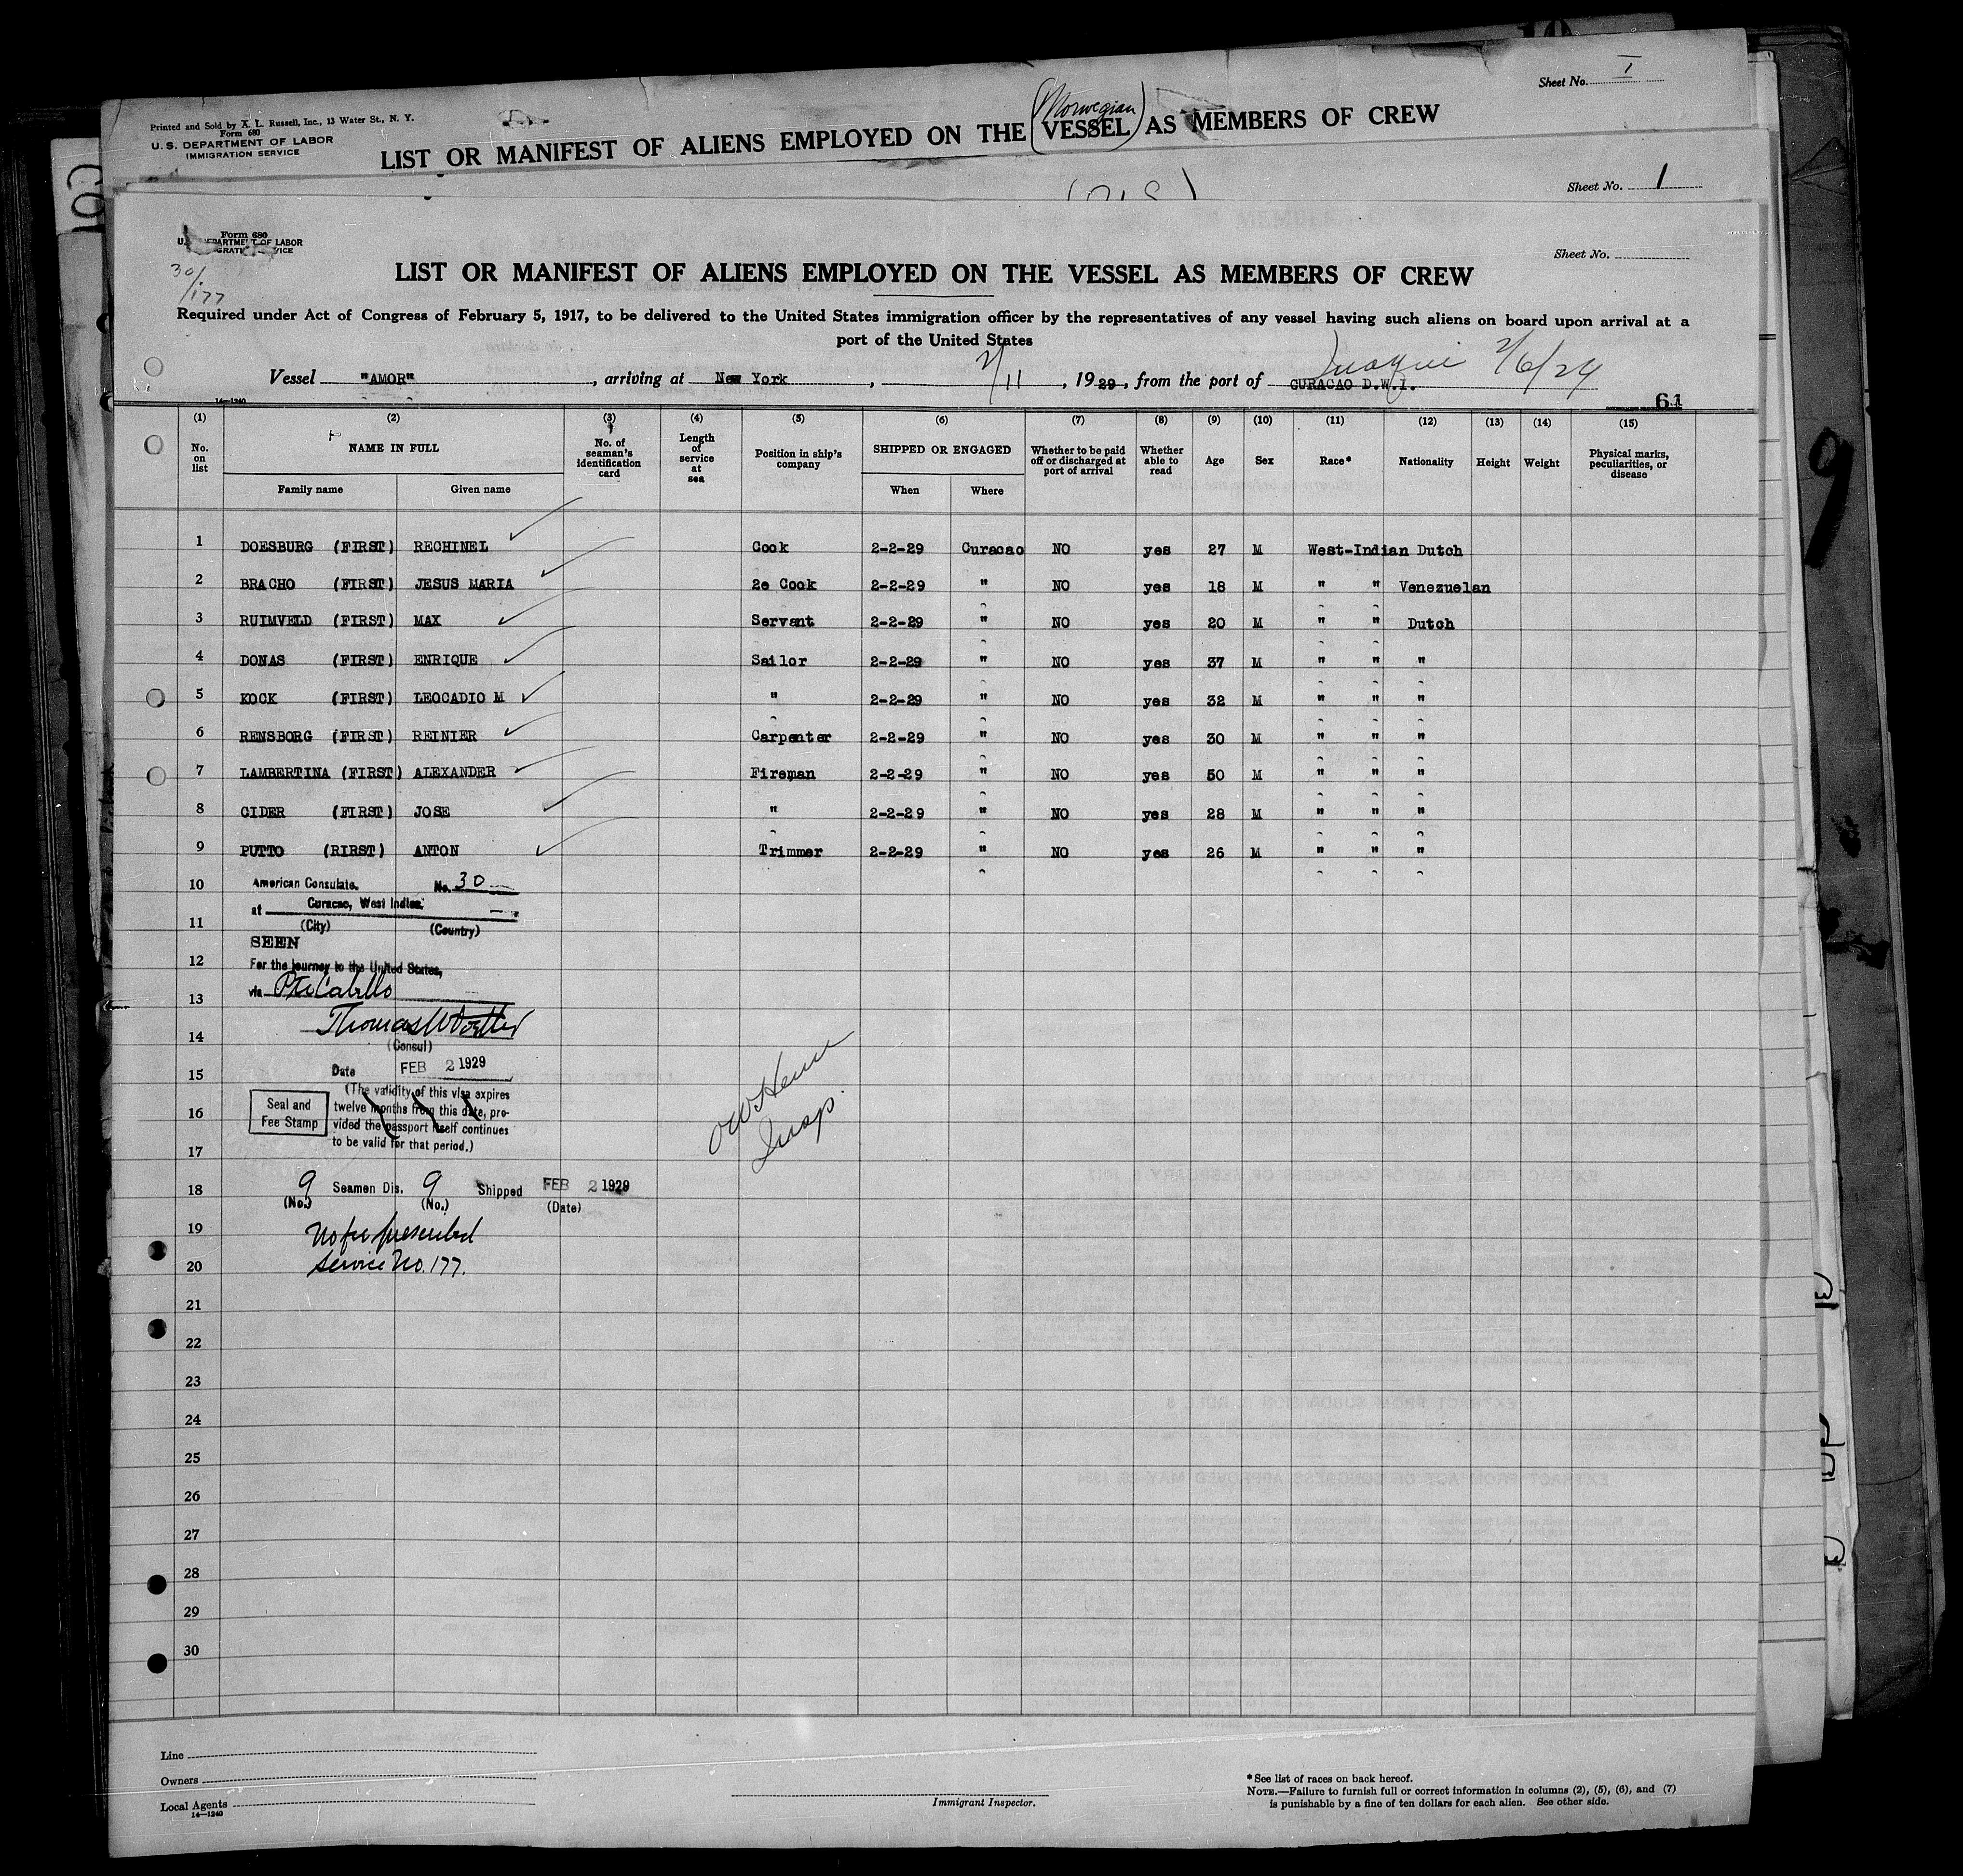 Sheet No. I
Printed and Sold by X. L. Russell, Inc., 13 Water St., N. Y.
Form 680
U. S. DEPARTMENT OF LABOR
IMMIGRATION SERVICE
(Norwegian)
LIST OR MANIFEST OF ALIENS EMPLOYED ON THE VESSEL AS MEMBERS OF CREW
Sheet No. 1
Form 680
U. DEPARTMENT OF LABOR
Sheet No.
30/177
LIST OR MANIFEST OF ALIENS EMPLOYED ON THE VESSEL AS MEMBERS OF CREW
Required under Act of Congress of February 5, 1917, to be delivered to the United States immigration officer by the representatives of any vessel having such aliens on board upon arrival at a
port of the United States
Vessel "AMOR", arriving at New York, 2/11, 1929, from the port of CURACAO D.W.I. 2/6/29
14—1240
61
(1) (2) (3) (4) (5) (6) (7) (8) (9) (10) (11) (12) (13) (14) (15)
No. on list NAME IN FULL No. of seaman's identification card Length of service at sea Position in ship's company SHIPPED OR ENGAGED Whether to be paid off or discharged at port of arrival Whether able to read Age Sex Race* Nationality Height Weight Physical marks, peculiarities, or disease
Family name Given name When Where
1 DOESBURG (FIRST) RECHINEL Cook 2-2-29 Curacao NO yes 27 M West-Indian Dutch
2 BRACHO (FIRST) JESUS MARIA 2e Cook 2-2-29 " NO yes 18 M " " Venezuelan
3 RUIMVELD (FIRST) MAX Servant 2-2-29 " NO yes 20 M " " Dutch
4 DONAS (FIRST) ENRIQUE Sailor 2-2-29 " NO yes 37 M " " "
5 KOCK (FIRST) LEOCADIO M " 2-2-29 " NO yes 32 M " " "
6 RENSBORG (FIRST) REINIER Carpenter 2-2-29 " NO yes 30 M " " "
7 LAMBERTINA (FIRST) ALEXANDER Fireman 2-2-29 " NO yes 50 M " " "
8 CIDER (FIRST) JOSE " 2-2-29 " NO yes 28 M " " "
9 PUTTO (RIRST) ANTON Trimmer 2-2-29 " NO yes 26 M " " "
10 American Consulate. No. 30
at Curacao, West Indies.
11 (City) (Country)
SEEN
12 For the journey to the United States,
via Pto Cabello
13
Thomas W
14 (Consul)
15 Date FEB 2 1929
(The validity of this visa expires
16 Seal and Fee Stamp twelve months from this date, pro-
vided the passport itself continues
17 to be valid for that period.)
Insp.
18 9 Seamen Dis. 9 Shipped FEB 2 1929
(No.) (No.) (Date)
19 No fee prescribed
20 Service No. 177.
21
22
23
24
25
26
27
28
29
30
Line
Owners
Local Agents
14—1240
Immigrant Inspector.
*See list of races on back hereof.
NOTE.—Failure to furnish full or correct information in columns (2), (5), (6), and (7)
is punishable by a fine of ten dollars for each alien. See other side.